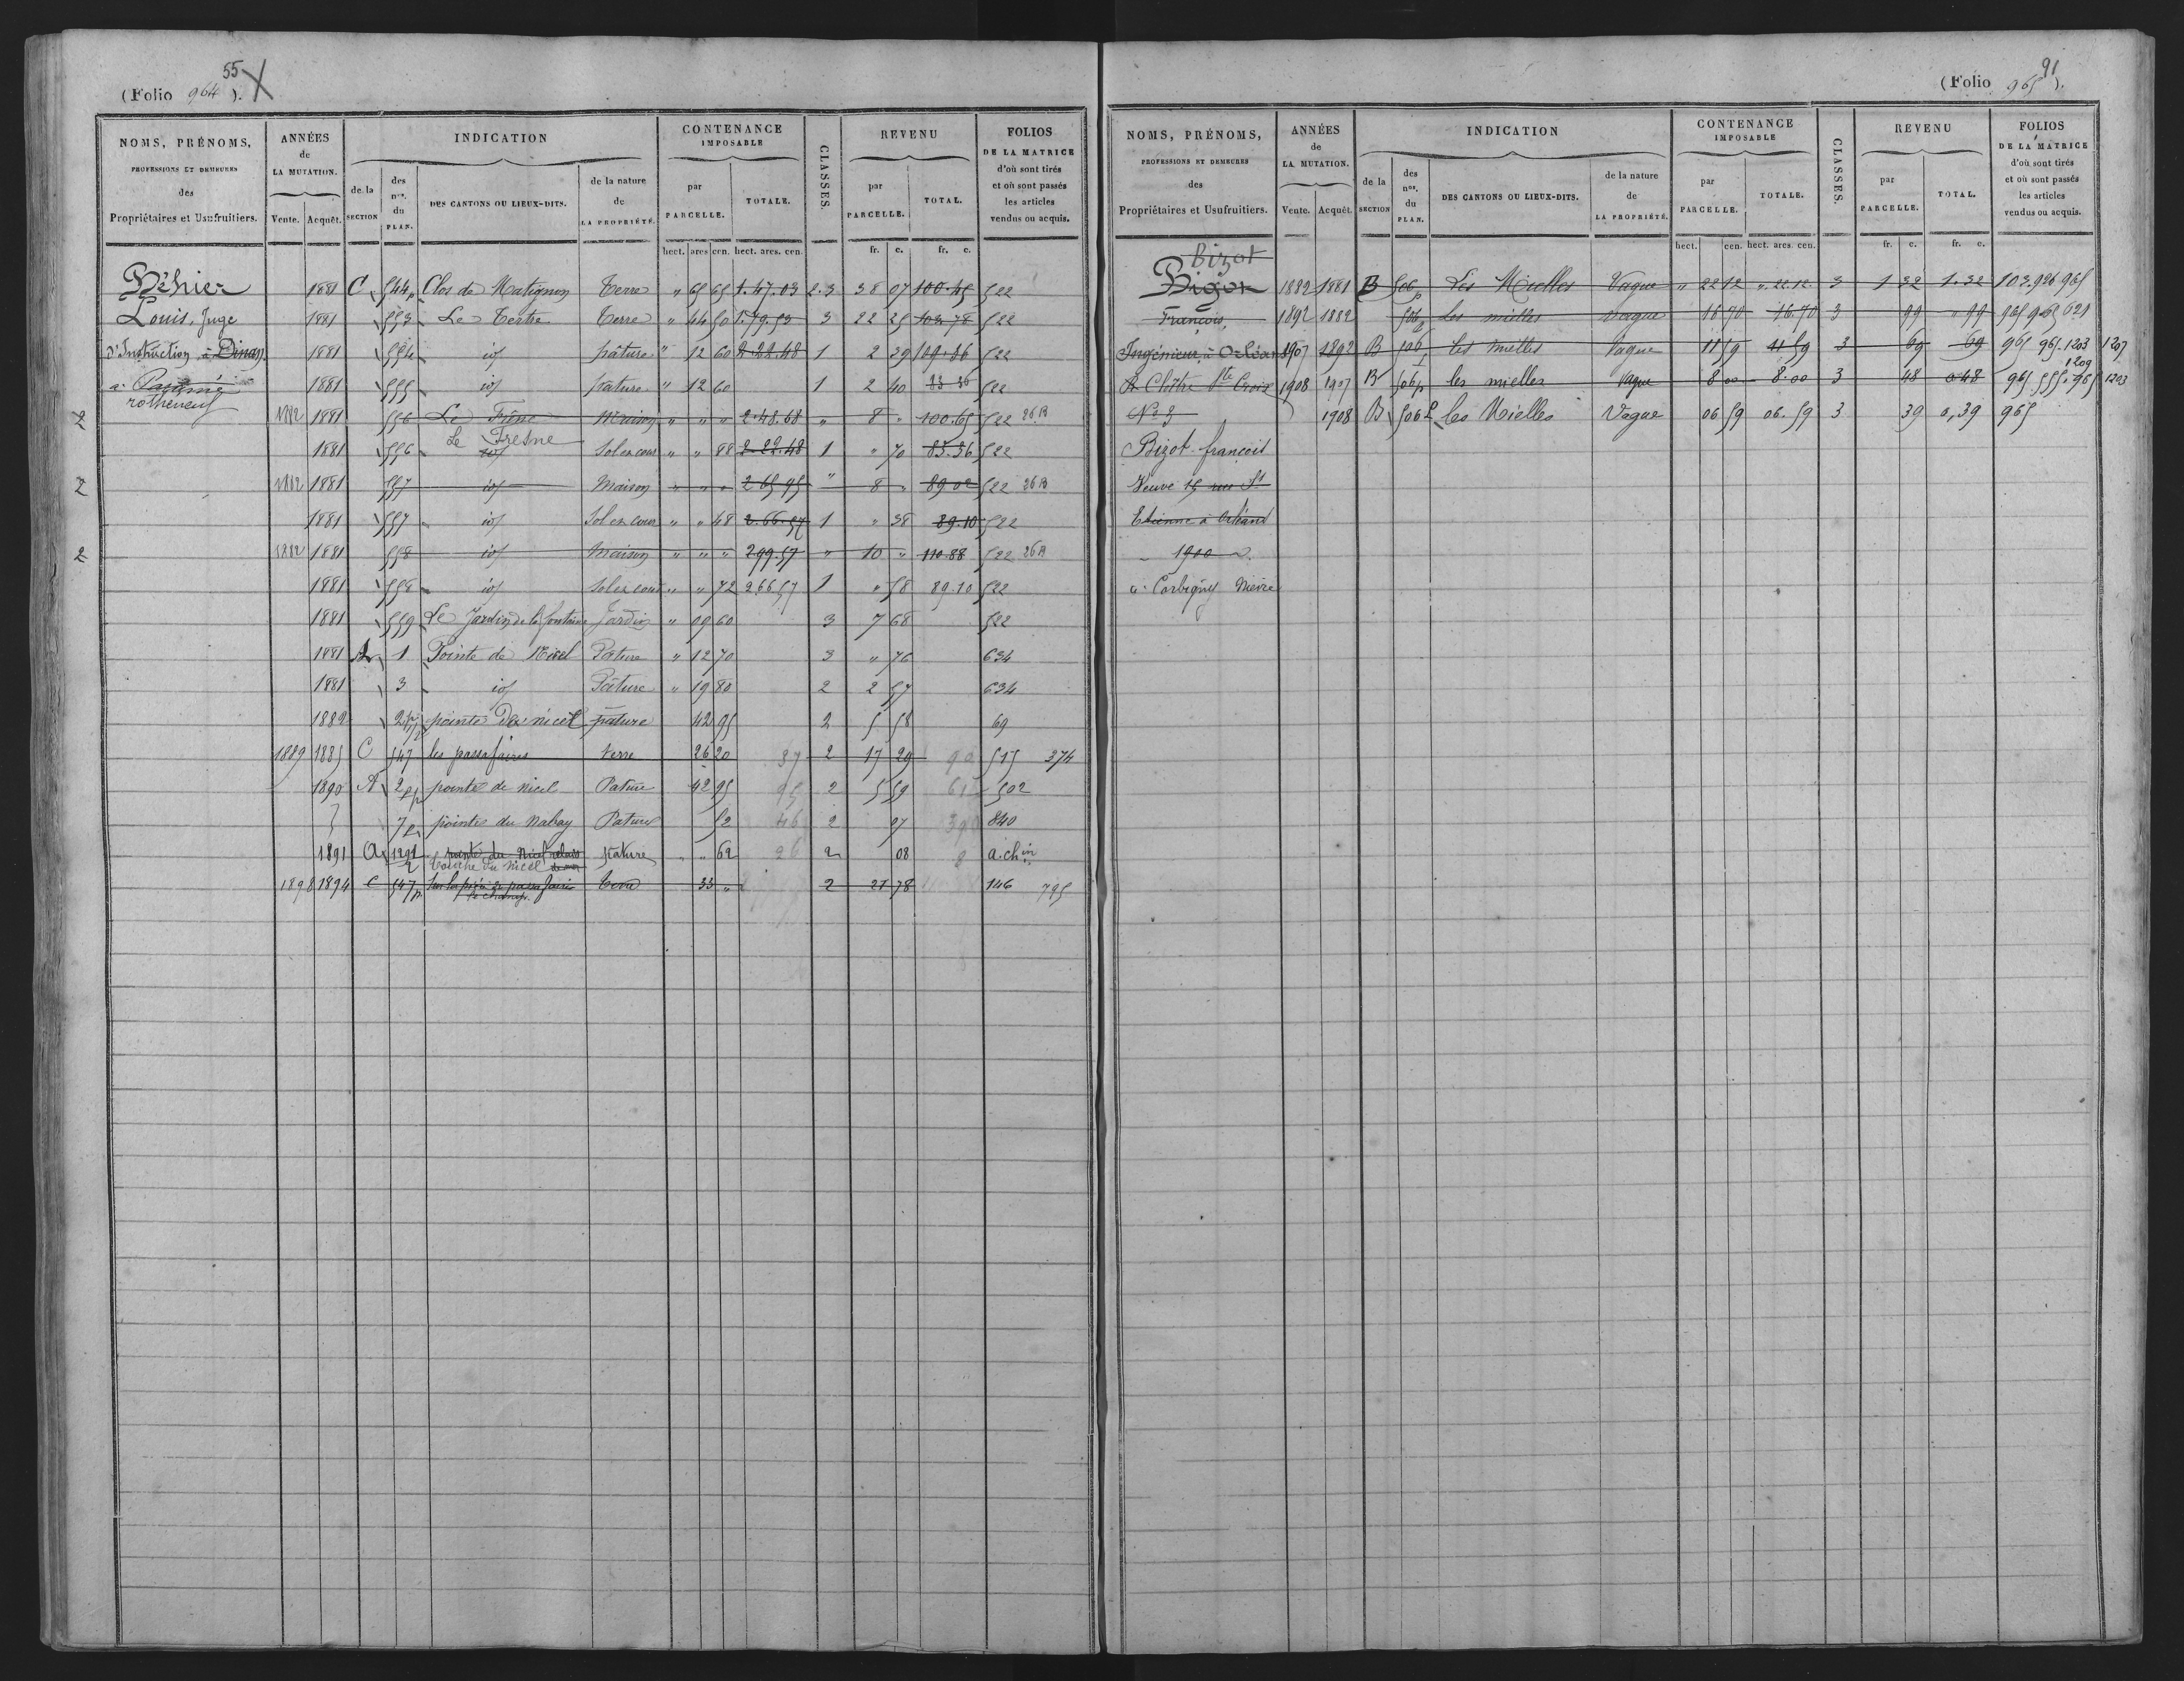 55
(Folio 964).
NOMS, PRÉNOMS,
PROFESSIONS ET DEMEURES
des
Propriétaires et Usufruitiers.
ANNÉES
de
LA MUTATION.
Vente. Acquêt.
INDICATION
de la
SECTION
des
nos.
du
PLAN.
DES CANTONS OU LIEUX-DITS.
de la nature
de
LA PROPRIÉTÉ.
CONTENANCE
IMPOSABLE
par
PARCELLE.
TOTALE.
CLASSES.
REVENU
par
PARCELLE.
TOTAL.
FOLIOS
DE LA MATRICE
d'où sont tirés
et où sont passés
les articles
vendus ou acquis.
hect. ares cen. hect. ares. cen. fr. c. fr. c.
Béhier 1881 C 544p Clos de Matignon Terre " 65 65 1.47.03 2.3 38 07 100.45 522
Louis, Juge 1881 553 Le Tertre Terre " 44 50 1.79.53 3 22 25 103.78 522
d'Instruction à Dinan 1881 554 id pâture " 12 60 2.22.48 1 2 29 109.36 522
à Paramé 1881 555 id pature " 12 60 1 2 40 522
rothéneuf
2 1882 1881 556 Le Frêne Maison " " " 2.48.68 " 8 " 100.65 522 26B
Le Fresne
1881 556 id Sol en cour " " 88 2.22.48 1 " 70 83.36 522
2 1882 1881 557 id Maison " " " 2 65 95 " 8 " 89 02 522 26B
1881 557 id Sol en cour " " 48 2.66.57 1 " 38 89.10 522
2 1882 1881 558 id Maison " " " 2 99.57 " 10 " 110.88 522 26B
1881 558 id Sol en cour " " 72 2 66 57 1 " 58 89.10 522
1881 559 Le Jardin de la fontaine Jardin " 09 60 3 7 68 522
1881 A 1 Pointe de Nicel Pature " 12 70 3 " 76 634
1881 3 id Pâture " 19 80 2 2 57 634
1882 2 pointe du nicet pature 42 95 2 5 58 69
1889 1885 C 547 les passafaires terre 26 20 37 2 17 29 90 515 374
1890 A 2 pointe de nicel Pature 42 95 95 2 5 59 61 502
7 pointe du Nabay Pature 52 46 2 07 390 840
1891 A 1291 pointe du Nicet relais pature " " 62 26 2 08 8 a.chin
2 bouche du Nicel
1898 1894 C 547p passafaire terre 33 " 2 21 78 146 795
le champ.
91
(Folio 965).
NOMS, PRÉNOMS,
PROFESSIONS ET DEMEURES
des
Propriétaires et Usufruitiers.
ANNÉES
de
LA MUTATION.
Vente. Acquêt.
INDICATION
de la
SECTION
des
nos.
du
PLAN.
DES CANTONS OU LIEUX-DITS.
de la nature
de
LA PROPRIÉTÉ.
CONTENANCE
IMPOSABLE
par
PARCELLE.
TOTALE.
CLASSES.
REVENU
par
PARCELLE.
TOTAL.
FOLIOS
DE LA MATRICE
d'où sont tirés
et où sont passés
les articles
vendus ou acquis.
hect. cen. hect. ares. cen. fr. c. fr. c.
Bizot
Bigot 1882 1881 B 506p Les Mielles Vague " 22 12 ".22.12 3 1 32 1.32 103.926 965
François, 1892 1882 506p les mielles Vague 16 70 16.70 3 99 " 99 965 965 621
Ingénieur, à Orléans 1907 1892 B 506 les mielles Vague 11 59 11 59 3 69 69 965 965.1203 1207
1209
R. Cloître Ste Croix 1908 1907 B 506p les mielles Vague 8 00 8.00 3 48 0.48 965.555.965 1203
No 3 1908 B 506p les Mielles Vague 06 59 06.59 3 39 0,39 965
Bizot françois
Veuve 15 rue St
Etienne à Orléans
1900
à Corbigny Nièvre